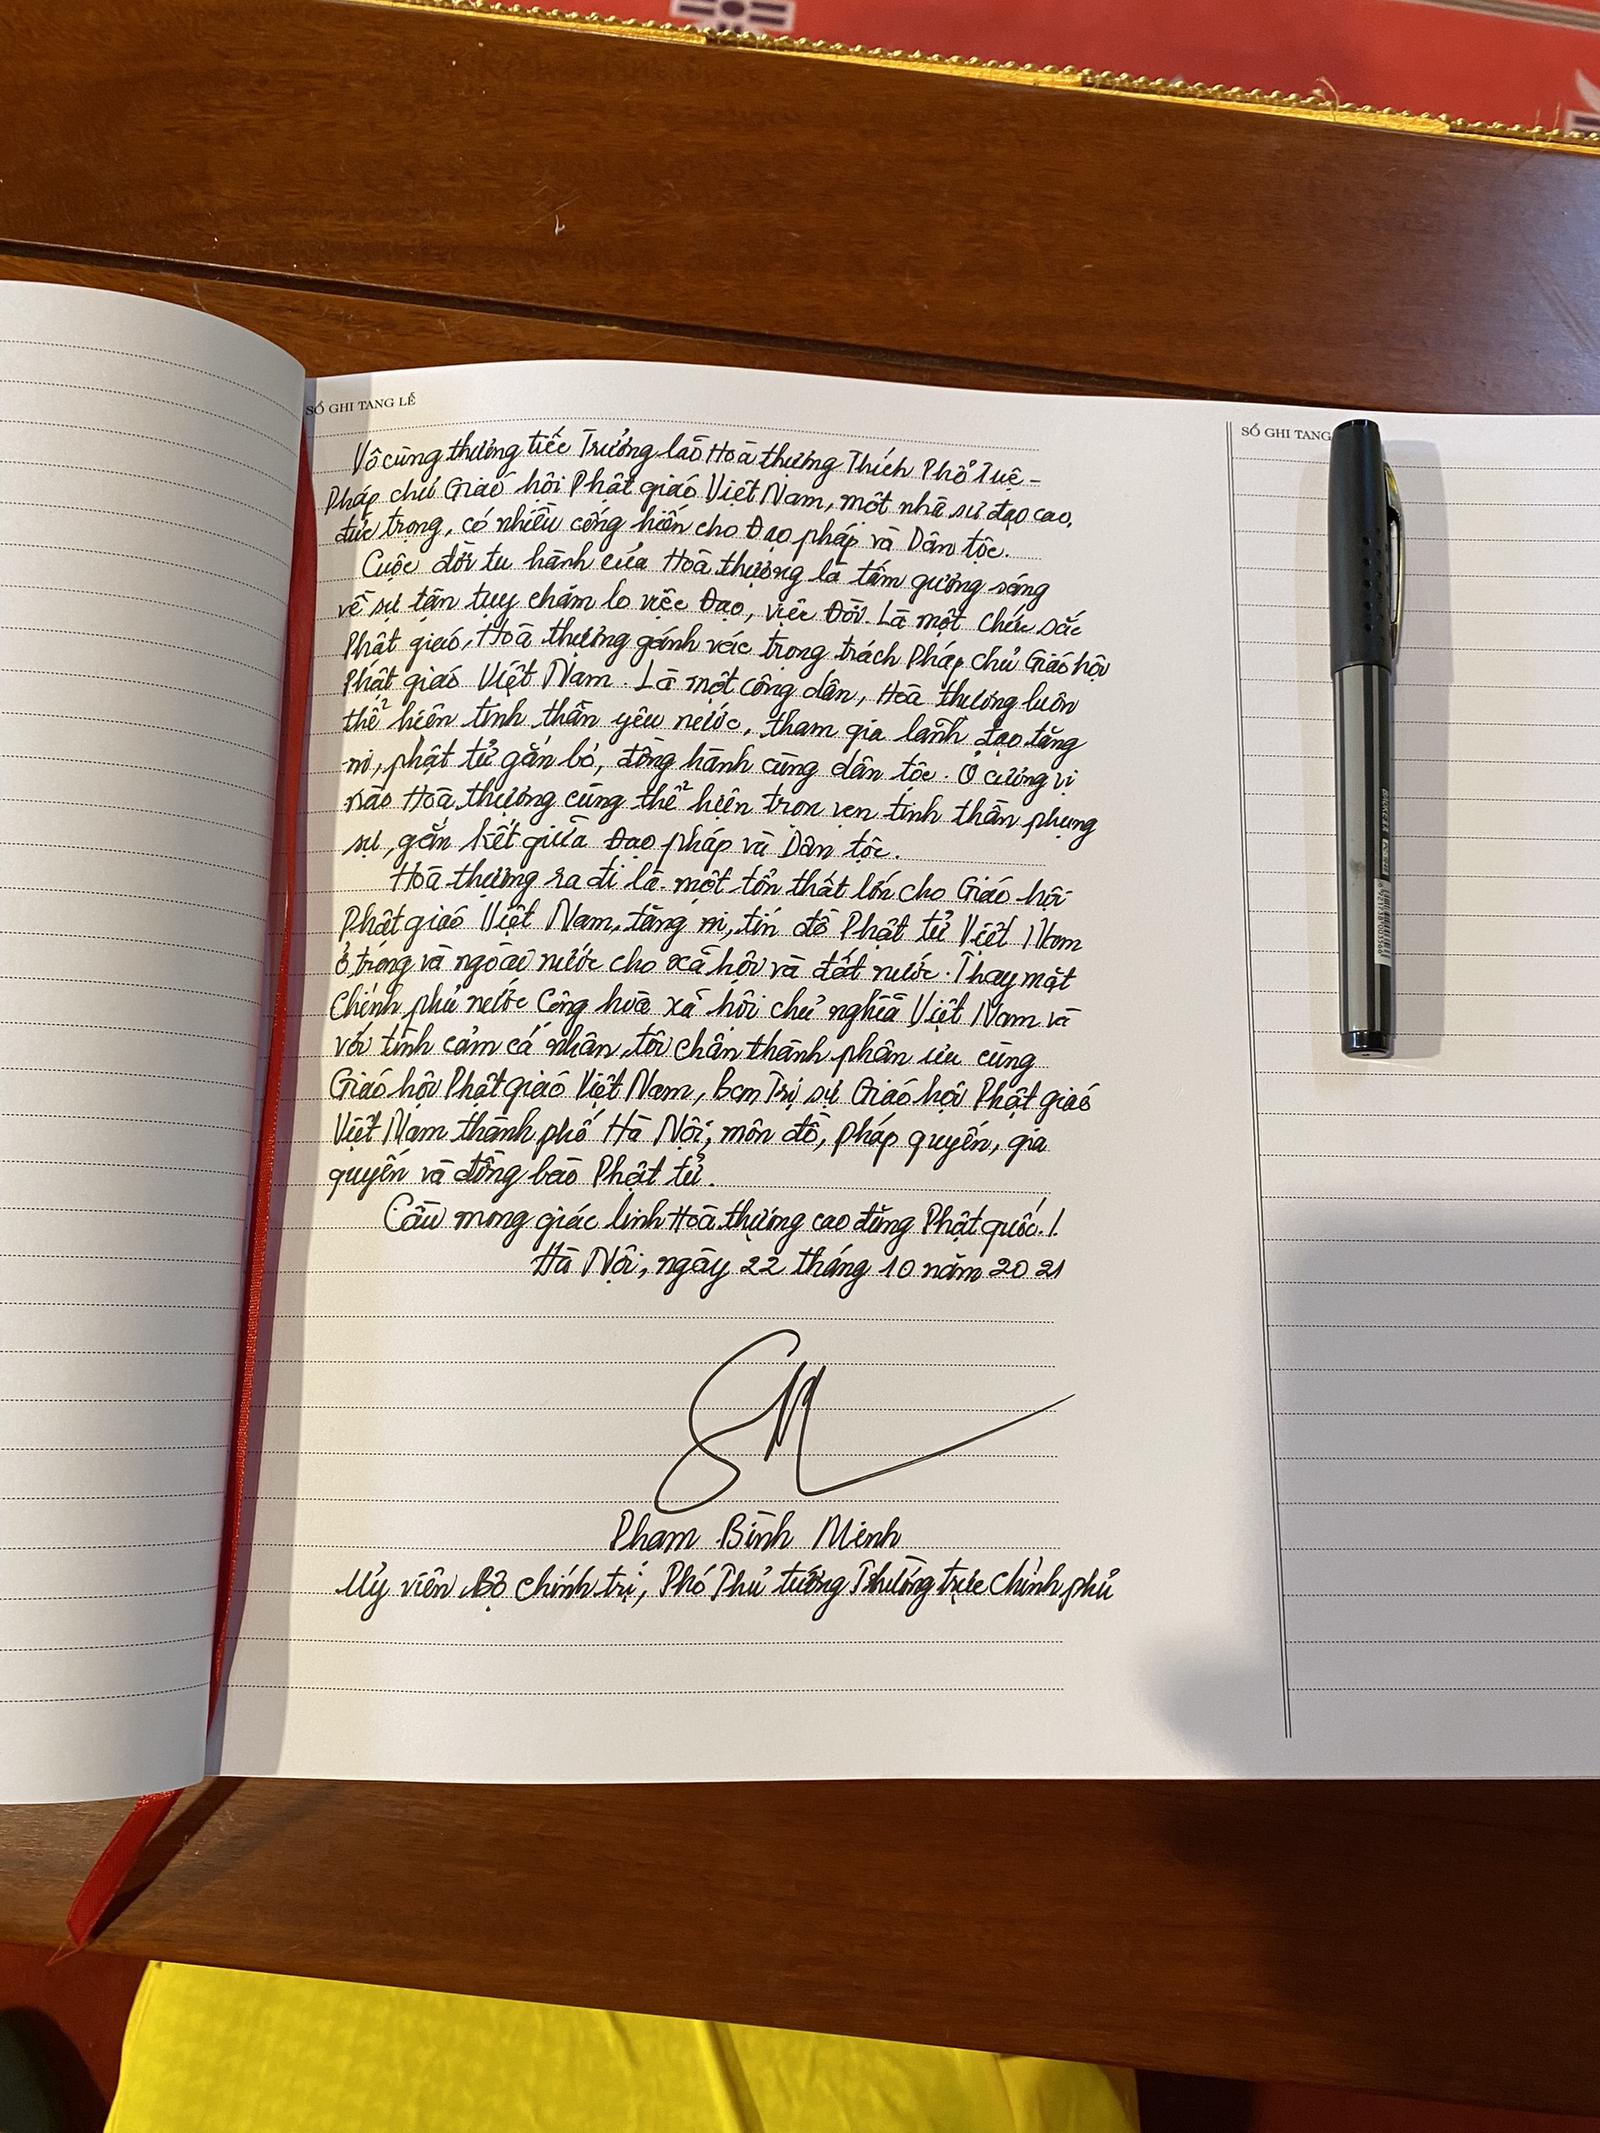 SỔ GHI TANG LỄ
Vô cùng thương tiếc Trưởng lão Hoà thượng Thích Phổ Tuệ -
Pháp chủ Giáo hội Phật giáo Việt Nam, một nhà sư đạo cao,
đức trọng, có nhiều cống hiến cho Đạo pháp và Dân tộc.
Cuộc đời tu hành của Hoà thượng là tấm gương sáng
về sự tận tụy chăm lo việc Đạo, việc Đời. Là một chức sắc
Phật giáo, Hoà thượng gánh vác trọng trách Pháp chủ Giáo hội
Phật giáo Việt Nam. Là một công dân, Hoà thượng luôn
thể hiện tinh thần yêu nước, tham gia lãnh đạo tăng
ni, phật tử gắn bó, đồng hành cùng dân tộc. Ở cương vị
nào Hoà thượng cũng thể hiện trọn vẹn tinh thần phụng
sự, gắn kết giữa Đạo pháp và Dân tộc.
Hoà thượng ra đi là một tổn thất lớn cho Giáo hội
Phật giáo Việt Nam, tăng ni, tín đồ Phật tử Việt Nam
ở trong và ngoài nước cho xã hội và đất nước. Thay mặt
Chính phủ nước Cộng hoà xã hội chủ nghĩa Việt Nam và
với tình cảm cá nhân, tôi chân thành phân ưu cùng
Giáo hội Phật giáo Việt Nam, Ban Trị sự Giáo hội Phật giáo
Việt Nam thành phố Hà Nội, môn đồ, pháp quyến, gia
quyến và đồng bào Phật tử.
Cầu mong giác linh Hoà thượng cao đăng Phật quốc./.
Hà Nội, ngày 22 tháng 10 năm 2021
Phạm Bình Minh
Uỷ viên Bộ Chính trị, Phó Thủ tướng Thường trực Chính phủ
SỔ GHI TANG